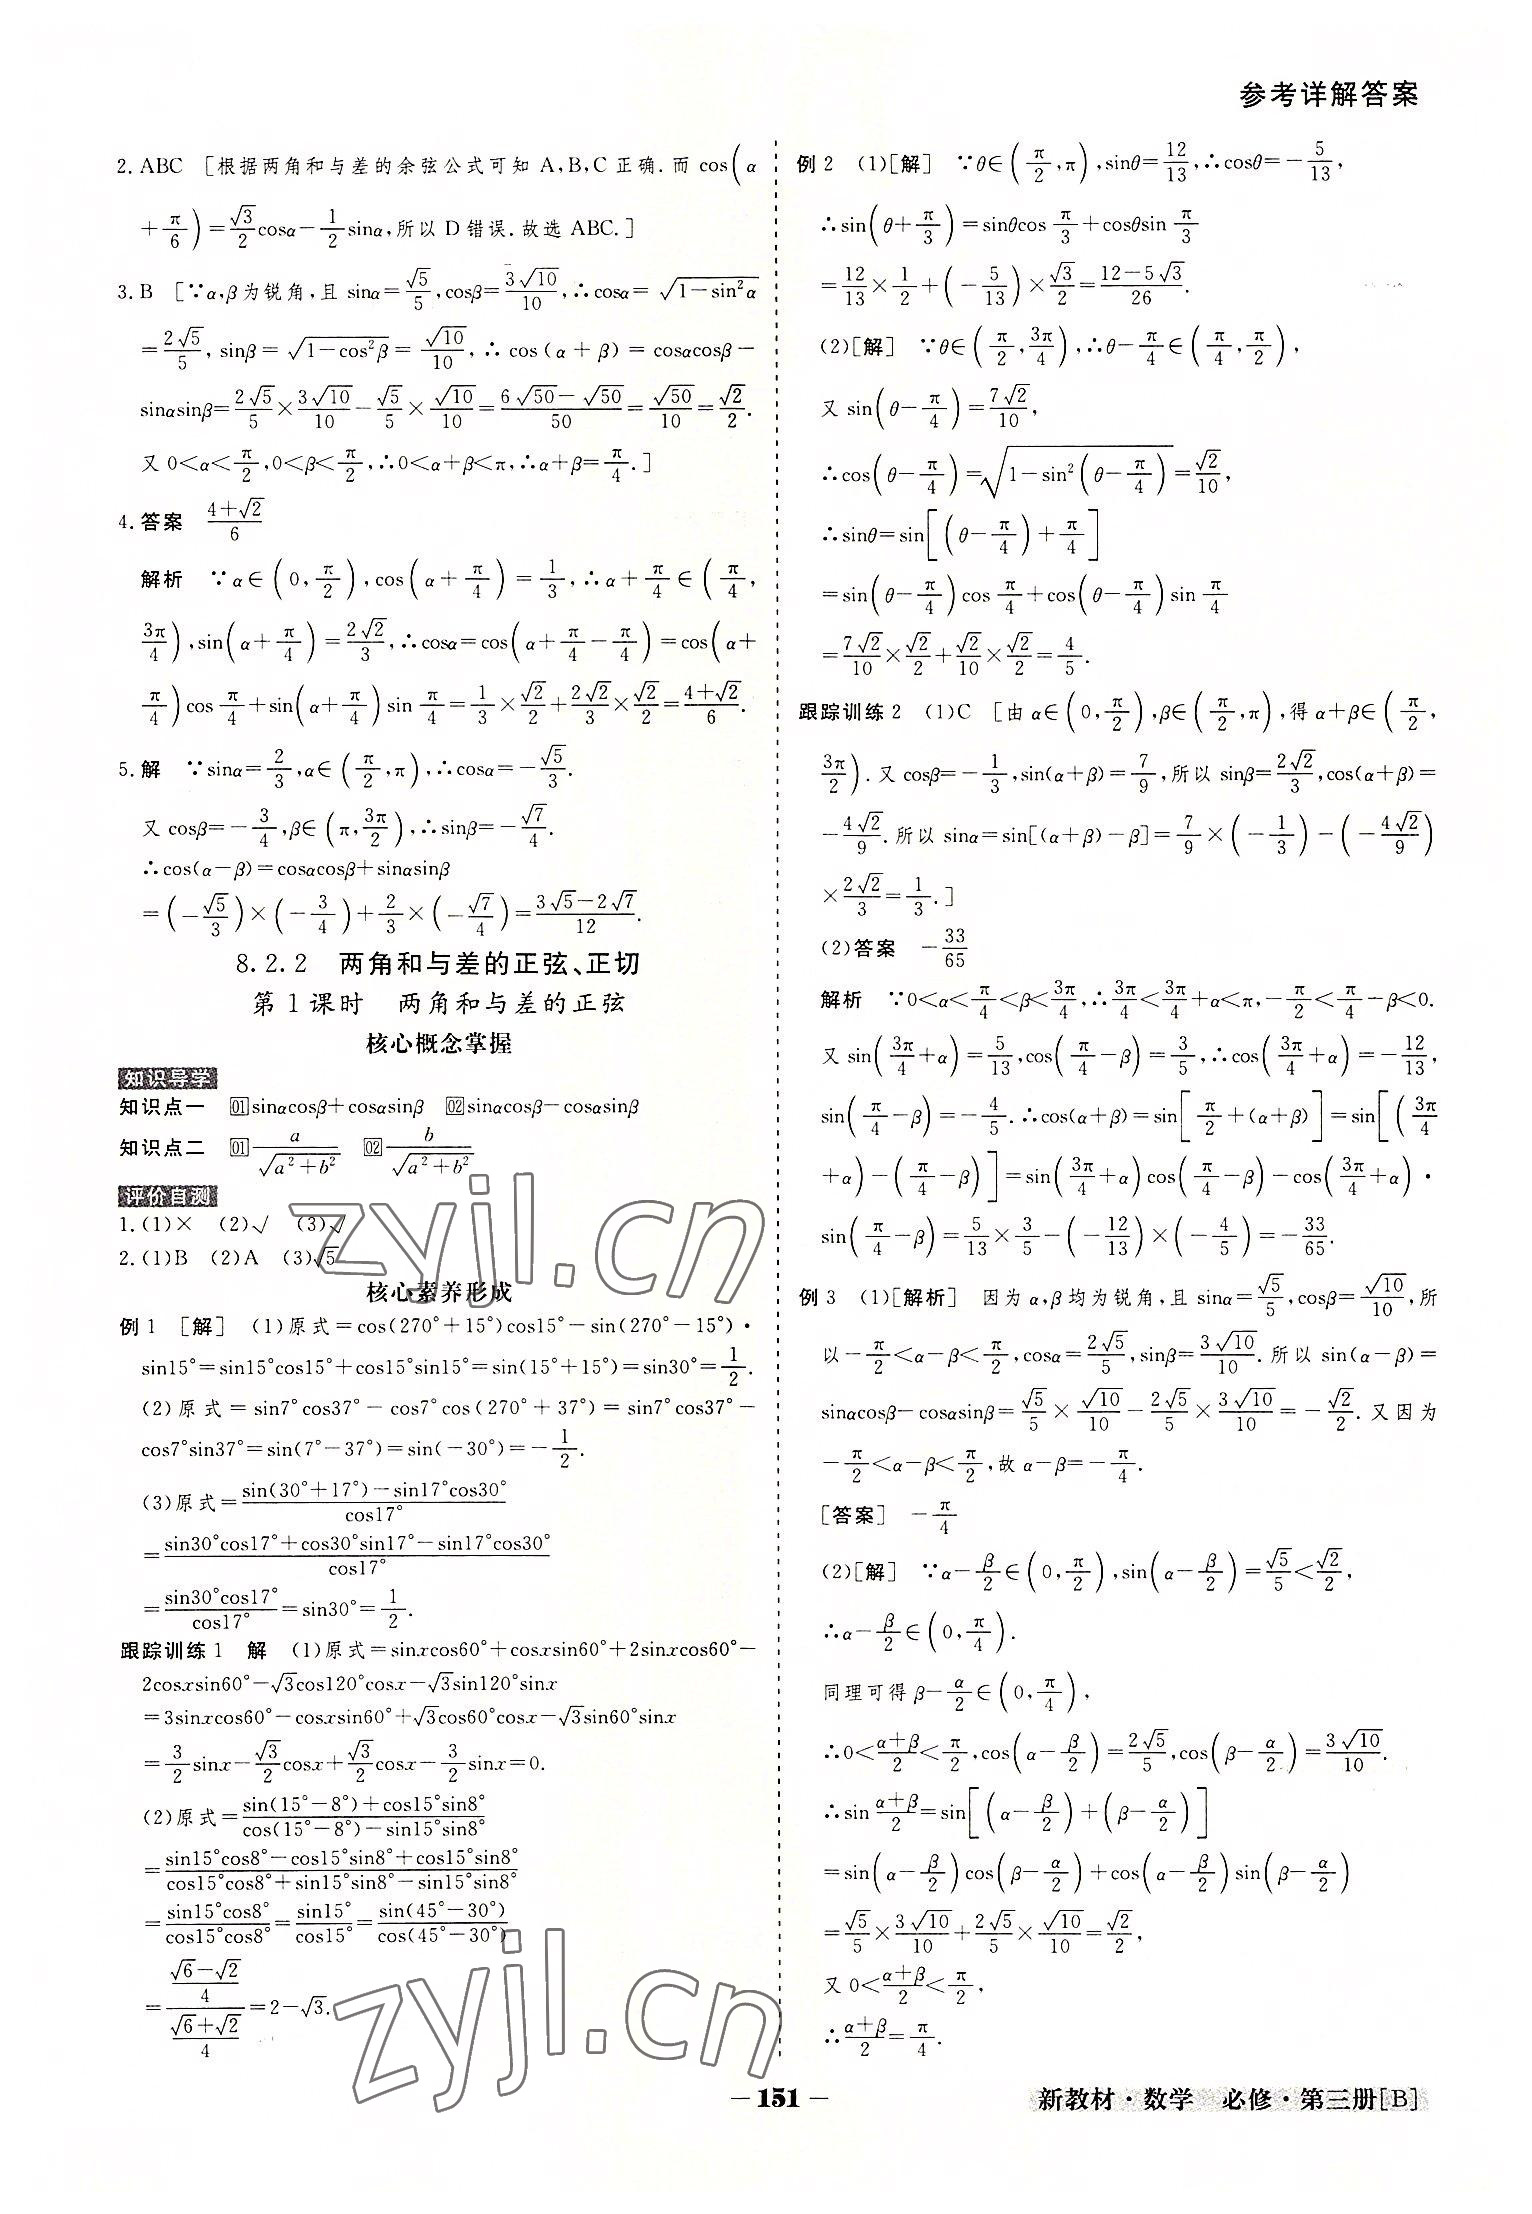 参考详解答案
2. ABC [根据两角和与差的余弦公式可知 A,B,C 正确. 而 cos(α
+π/6)=√3/2cosα-1/2sinα,所以 D 错误. 故选 ABC.]
3. B [∵α,β为锐角,且 sinα=√5/5,cosβ=3√10/10,∴cosα=√(1-sin²α)
=2√5/5, sinβ=√(1-cos²β)=√10/10,∴cos(α+β)=cosαcosβ-
sinαsinβ=2√5/5×3√10/10-√5/5×√10/10=(6√50-√50)/50=√50/10=√2/2.
又 0<α<π/2,0<β<π/2,∴0<α+β<π,∴α+β=π/4.]
4. 答案 (4+√2)/6
解析 ∵α∈(0,π/2),cos(α+π/4)=1/3,∴α+π/4∈(π/4,
3π/4),sin(α+π/4)=2√2/3,∴cosα=cos(α+π/4-π/4)=cos(α+
π/4)cosπ/4+sin(α+π/4)sinπ/4=1/3×√2/2+2√2/3×√2/2=(4+√2)/6.
5. 解 ∵sinα=2/3,α∈(π/2,π),∴cosα=-√5/3.
又 cosβ=-3/4,β∈(π,3π/2),∴sinβ=-√7/4.
∴cos(α-β)=cosαcosβ+sinαsinβ
=(-√5/3)×(-3/4)+2/3×(-√7/4)=(3√5-2√7)/12.
8.2.2 两角和与差的正弦、正切
第1课时 两角和与差的正弦
核心概念掌握
知识导学
知识点一 01 sinαcosβ+cosαsinβ 02 sinαcosβ-cosαsinβ
知识点二 01 a/√(a²+b²) 02 b/√(a²+b²)
评价自测
1.(1)× (2)√ (3)√
2.(1)B (2)A (3)√5
核心素养形成
例1 [解] (1)原式=cos(270°+15°)cos15°-sin(270°-15°)·
sin15°=sin15°cos15°+cos15°sin15°=sin(15°+15°)=sin30°=1/2.
(2)原式=sin7°cos37°-cos7°cos(270°+37°)=sin7°cos37°-
cos7°sin37°=sin(7°-37°)=sin(-30°)=-1/2.
(3)原式=(sin(30°+17°)-sin17°cos30°)/cos17°
=(sin30°cos17°+cos30°sin17°-sin17°cos30°)/cos17°
=sin30°cos17°/cos17°=sin30°=1/2.
跟踪训练1 解 (1)原式=sinxcos60°+cosxsin60°+2sinxcos60°-
2cosxsin60°-√3cos120°cosx-√3sin120°sinx
=3sinxcos60°-cosxsin60°+√3cos60°cosx-√3sin60°sinx
=3/2sinx-√3/2cosx+√3/2cosx-3/2sinx=0.
(2)原式=(sin(15°-8°)+cos15°sin8°)/(cos(15°-8°)-sin15°sin8°)
=(sin15°cos8°-cos15°sin8°+cos15°sin8°)/(cos15°cos8°+sin15°sin8°-sin15°sin8°)
=sin15°cos8°/cos15°cos8°=sin15°/cos15°=sin(45°-30°)/cos(45°-30°)
=((√6-√2)/4)/((√6+√2)/4)=2-√3.
例2 (1)[解] ∵θ∈(π/2,π),sinθ=12/13,∴cosθ=-5/13,
∴sin(θ+π/3)=sinθcosπ/3+cosθsinπ/3
=12/13×1/2+(-5/13)×√3/2=(12-5√3)/26.
(2)[解] ∵θ∈(π/2,3π/4),∴θ-π/4∈(π/4,π/2),
又 sin(θ-π/4)=7√2/10,
∴cos(θ-π/4)=√(1-sin²(θ-π/4))=√2/10,
∴sinθ=sin[(θ-π/4)+π/4]
=sin(θ-π/4)cosπ/4+cos(θ-π/4)sinπ/4
=7√2/10×√2/2+√2/10×√2/2=4/5.
跟踪训练2 (1)C [由 α∈(0,π/2),β∈(π/2,π),得 α+β∈(π/2,
3π/2). 又 cosβ=-1/3,sin(α+β)=7/9,所以 sinβ=2√2/3,cos(α+β)=
-4√2/9. 所以 sinα=sin[(α+β)-β]=7/9×(-1/3)-(-4√2/9)
×2√2/3=1/3.]
(2)答案 -33/65
解析 ∵0<α<π/4<β<3π/4,∴3π/4<3π/4+α<π,-π/2<π/4-β<0.
又 sin(3π/4+α)=5/13,cos(π/4-β)=3/5,∴cos(3π/4+α)=-12/13,
sin(π/4-β)=-4/5.∴cos(α+β)=sin[π/2+(α+β)]=sin[(3π/4
+α)-(π/4-β)]=sin(3π/4+α)cos(π/4-β)-cos(3π/4+α)·
sin(π/4-β)=5/13×3/5-(-12/13)×(-4/5)=-33/65.
例3 (1)[解析] 因为 α,β均为锐角,且 sinα=√5/5,cosβ=√10/10,所
以-π/2<α-β<π/2,cosα=2√5/5,sinβ=3√10/10. 所以 sin(α-β)=
sinαcosβ-cosαsinβ=√5/5×√10/10-2√5/5×3√10/10=-√2/2. 又因为
-π/2<α-β<π/2,故 α-β=-π/4.
[答案] -π/4
(2)[解] ∵α-β/2∈(0,π/2),sin(α-β/2)=√5/5<√2/2,
∴α-β/2∈(0,π/4).
同理可得 β-α/2∈(0,π/4),
∴0<(α+β)/2<π/2,cos(α-β/2)=2√5/5,cos(β-α/2)=3√10/10.
∴sin(α+β)/2=sin[(α-β/2)+(β-α/2)]
=sin(α-β/2)cos(β-α/2)+cos(α-β/2)sin(β-α/2)
=√5/5×3√10/10+2√5/5×√10/10=√2/2,
又 0<(α+β)/2<π/2,
∴(α+β)/2=π/4.
zyjl.cn
zyjl.cn
- 151 -
新教材·数学 必修·第三册[B]